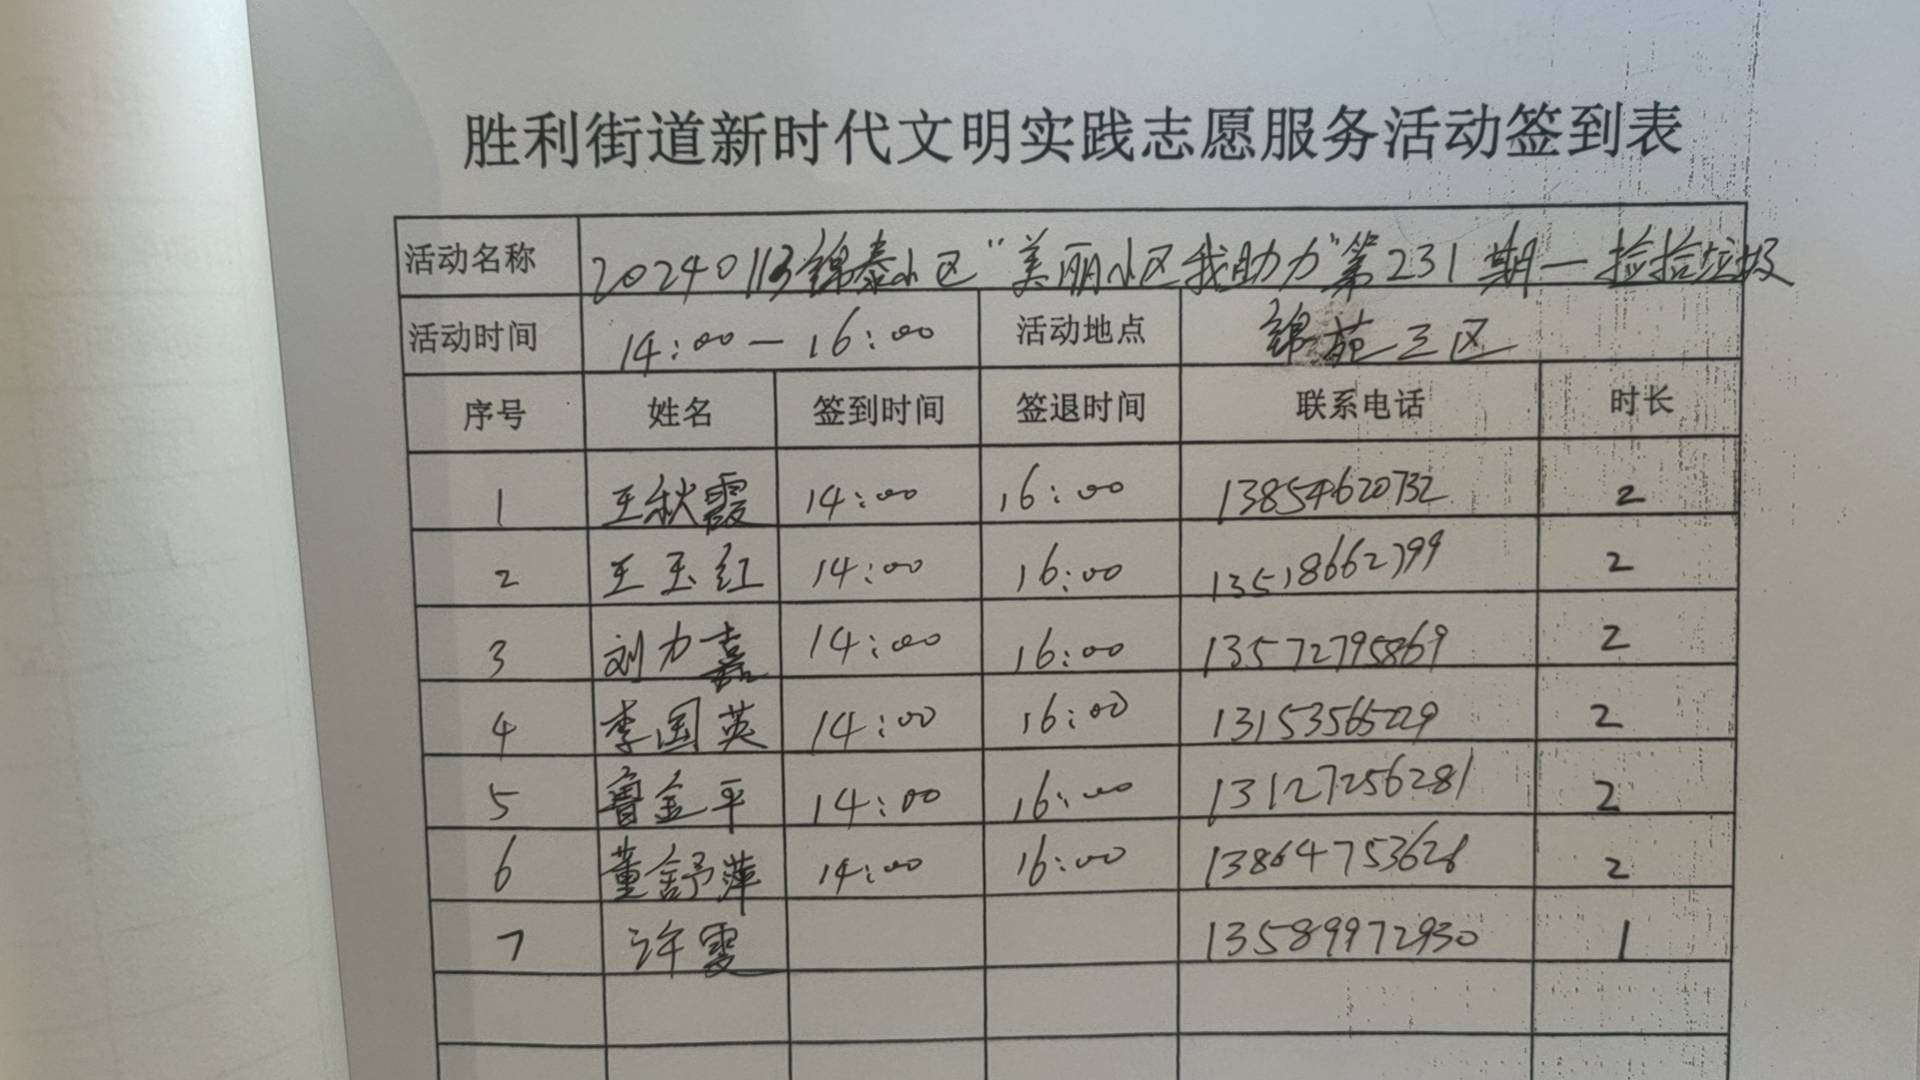 胜利街道新时代文明实践志愿服务活动签到表
活动名称 20240113锦泰小区“美丽小区我助力”第231期—捡拾垃圾
活动时间 14:00—16:00 活动地点 锦苑三区
序号 姓名 签到时间 签退时间 联系电话 时长
1 王秋霞 14:00 16:00 13854620732 2
2 王玉红 14:00 16:00 13518662799 2
3 刘力嘉 14:00 16:00 13572795869 2
4 李国英 14:00 16:00 13153565029 2
5 金平 14:00 16:00 13127256281 2
6 董舒萍 14:00 16:00 13864753628 2
7 许雯 13589972930 1